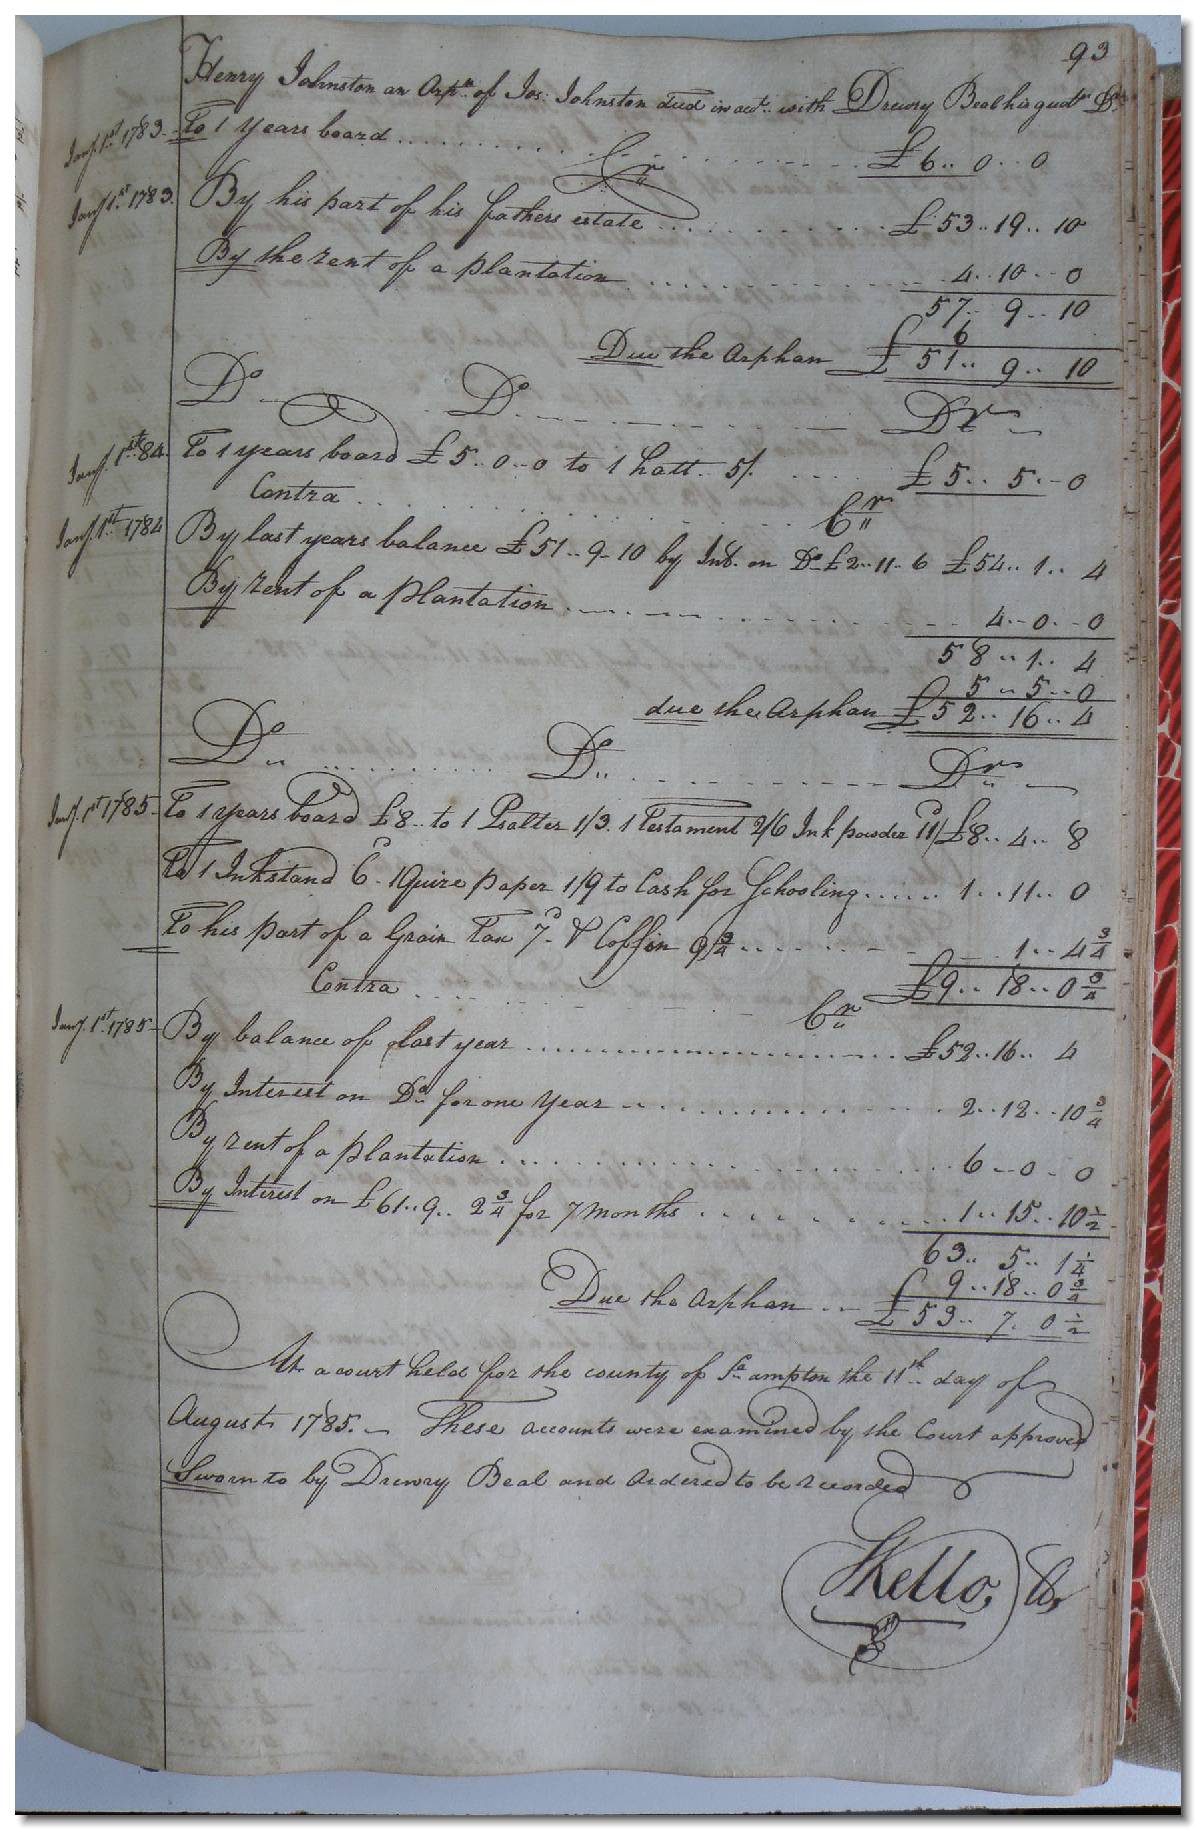 93
Henry Johnston an Orpn. of Jos: Johnston decd in acct. with Drewry Beal his guardn Dr.
Jany. 1st. 1783. To 1 Years board .......... £6.. 0.. 0
Cr
Jany. 1st. 1783. By his part of his fathers estate .......... £53..19..10
By the rent of a plantation .......... 4..10..0
57.. 9..10
6
Due the Orphan £51.. 9..10
Do. Do. Dr
Jany. 1st. 84. To 1 years board £5..0..0 to 1 hatt 5/. £5.. 5..0
Contra .......... Cr
Jany. 1st. 1784 By last years balance £51..9..10 by Int. on Do. £2..11..6 £54.. 1.. 4
By rent of a plantation .......... 4..0..0
58..1.. 4
5..5..0
due the Orphan £52..16..4
Do. Do. Dr
Jany. 1st 1785. To 1 years board £8.. to 1 Psalter 1/3. 1 Testament 2/6 Ink powder 11d/ £8.. 4.. 8
To 1 Inkstand 6d. 1 Quire paper 1/9 to Cash for Schooling ...... 1..11..0
To his part of a Grain Tax 7d. & Coffin 9¾ ...... 1..4¾
£9..18..0¾
Contra .......... Cr
Jany. 1st. 1785 By balance of last year .......... £52..16.. 4
By Interest on Do. for one Year .......... 2..12..10¾
By rent of a plantation .......... 6..0..0
By Interest on £61..9..2¾ for 7 months .......... 1..15..10½
63.. 5.. 1¼
9..18..0¾
Due the Orphan .. £53.. 7. 0½
At a court held for the county of So.ampton the 11th. day of
August 1785. These accounts were examined by the Court approved
Sworn to by Drewry Beal and Ordered to be recorded
SKello, Cl